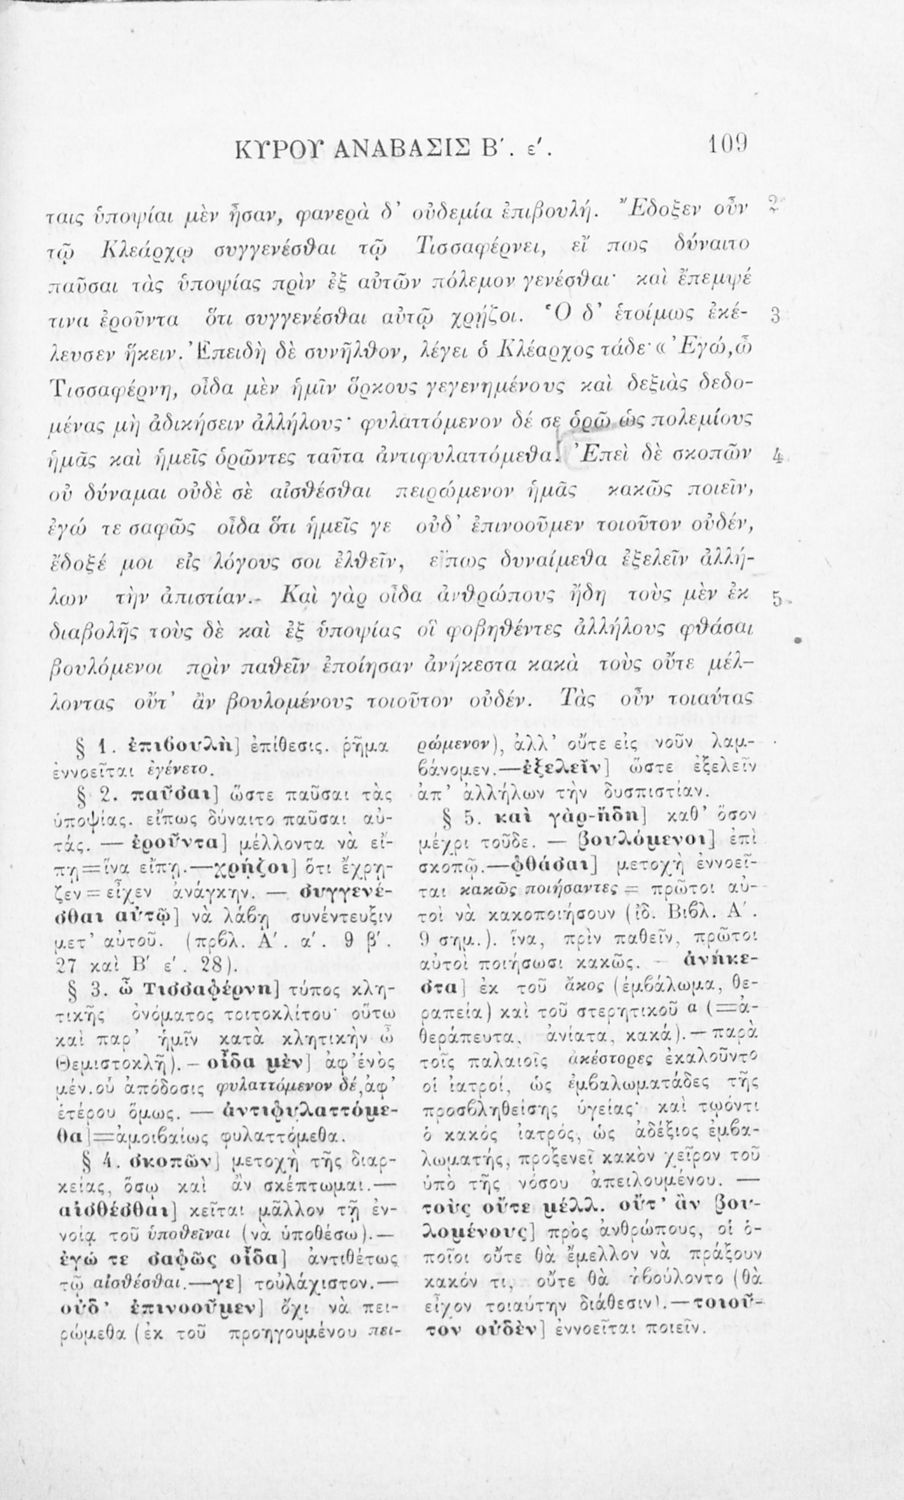 ΚΥΡΟΥ ΑΝΑΒΑΣΙΣ Β΄. ε΄. 109
ταις ὑποψίαι μὲν ἦσαν, φανερὰ δ' οὐδεμία ἐπιβουλή. Ἔδοξεν οὖν 2
τῷ Κλεάρχῳ συγγενέσθαι τῷ Τισσαφέρνει, εἴ πως δύναιτο
παῦσαι τὰς ὑποψίας πρὶν ἐξ αὐτῶν πόλεμον γενέσθαι· καὶ ἔπεμψέ
τινα ἐροῦντα ὅτι συγγενέσθαι αὐτῷ χρῄζοι. Ὁ δ' ἑτοίμως ἐκέ- 3
λευσεν ἥκειν. Ἐπειδὴ δὲ συνῆλθον, λέγει ὁ Κλέαρχος τάδε· « Ἐγώ, ὦ
Τισσαφέρνη, οἶδα μὲν ἡμῖν ὅρκους γεγενημένους καὶ δεξιὰς δεδο-
μένας μὴ ἀδικήσειν ἀλλήλους· φυλαττόμενον δέ σε ὁρῶ ὡς πολεμίους
ἡμᾶς καὶ ἡμεῖς ὁρῶντες ταῦτα ἀντιφυλαττόμεθα. Ἐπεὶ δὲ σκοπῶν 4
οὐ δύναμαι οὐδὲ σὲ αἰσθέσθαι πειρώμενον ἡμᾶς κακῶς ποιεῖν,
ἐγώ τε σαφῶς οἶδα ὅτι ἡμεῖς γε οὐδ' ἐπινοοῦμεν τοιοῦτον οὐδέν,
ἔδοξέ μοι εἰς λόγους σοι ἐλθεῖν, εἴπως δυναίμεθα ἐξελεῖν ἀλλή-
λων τὴν ἀπιστίαν.- Καὶ γὰρ οἶδα ἀνθρώπους ἤδη τοὺς μὲν ἐκ 5
διαβολῆς τοὺς δὲ καὶ ἐξ ὑποψίας οἳ φοβηθέντες ἀλλήλους φθάσαι
βουλόμενοι πρὶν παθεῖν ἐποίησαν ἀνήκεστα κακὰ τοὺς οὔτε μέλ-
λοντας οὔτ' ἂν βουλομένους τοιοῦτον οὐδέν. Τὰς οὖν τοιαύτας
§ 1. ἐπιβουλὴ] ἐπίθεσις. ῥῆμα
ἐννοεῖται ἐγένετο.
§ 2. παῦσαι] ὥστε παῦσαι τὰς
ὑποψίας. εἴπως δύναιτο παῦσαι αὐ-
τάς. — ἐροῦντα] μέλλοντα νὰ εἴ-
πῃ=ἵνα εἴπῃ.—χρῄζοι] ὅτι ἔχρῃ-
ζεν = εἶχεν ἀνάγκην. — συγγενέ-
σθαι αὐτῷ] νὰ λάβῃ συνέντευξιν
μετ' αὐτοῦ. (πρβλ. Α΄. α΄. 9 β΄.
27 καὶ Β΄ ε΄. 28).
§ 3. ὦ Τισσαφέρνη] τύπος κλη-
τικῆς ὀνόματος τριτοκλίτου· οὕτω
καὶ παρ' ἡμῖν κατὰ κλητικὴν ὦ
Θεμιστοκλῆ). — οἶδα μὲν] ἀφ' ἑνὸς
μέν. οὗ ἀπόδοσις φυλαττόμενον δέ, ἀφ'
ἑτέρου ὅμως. — ἀντιφυλαττόμε-
θα]=ἀμοιβαίως φυλαττόμεθα.
§ 4. σκοπῶν] μετοχὴ τῆς διαρ-
κείας, ὅσῳ καὶ ἂν σκέπτωμαι.—
αἰσθέσθαι] κεῖται μᾶλλον τῇ ἐν-
νοίᾳ τοῦ ὑποθεῖναι (νὰ ὑποθέσω).—
ἐγώ τε σαφῶς οἶδα] ἀντιθέτως
τῷ αἰσθέσθαι.—γε] τοὐλάχιστον.—
οὐδ' ἐπινοοῦμεν] ὄχι νὰ πει-
ρώμεθα (ἐκ τοῦ προηγουμένου πει-
ρώμενον), ἀλλ' οὔτε εἰς νοῦν λαμ-
βάνομεν.—ἐξελεῖν] ὥστε ἐξελεῖν
ἀπ' ἀλλήλων τὴν δυσπιστίαν.
§ 5. καὶ γὰρ-ἤδη] καθ' ὅσον
μέχρι τοῦδε. — βουλόμενοι] ἐπὶ
σκοπῷ.—φθάσαι] μετοχὴ ἐννοεῖ-
ται κακῶς ποιήσαντες = πρῶτοι αὐ-
τοὶ νὰ κακοποιήσουν (ἰδ. Βιβλ. Α΄.
9 σημ.). ἵνα, πρὶν παθεῖν, πρῶτοι
αὐτοὶ ποιήσωσι κακῶς. — ἀνήκε-
στα] ἐκ τοῦ ἄκος (ἐμβάλωμα, θε-
ραπεία) καὶ τοῦ στερητικοῦ α (=ἀ-
θεράπευτα, ἀνίατα, κακά).— παρὰ
τοῖς παλαιοῖς ἀκέστορες ἐκαλοῦντο
οἱ ἰατροί, ὡς ἐμβαλωματάδες τῆς
προσβληθείσης ὑγείας· καὶ τῳόντι
ὁ κακός ἰατρός, ὡς ἀδέξιος ἐμβα-
λωματής, προξενεῖ κακὸν χεῖρον τοῦ
ὑπὸ τῆς νόσου ἀπειλουμένου. —
τοὺς οὔτε μέλλ. οὔτ' ἂν βου-
λομένους] πρὸς ἀνθρώπους, οἱ ὁ-
ποῖοι οὔτε θὰ ἔμελλον νὰ πράξουν
κακόν τι, οὔτε θὰ ἠβούλοντο (θὰ
εἶχον τοιαύτην διάθεσιν).—τοιοῦ-
τον οὐδὲν] ἐννοεῖται ποιεῖν.